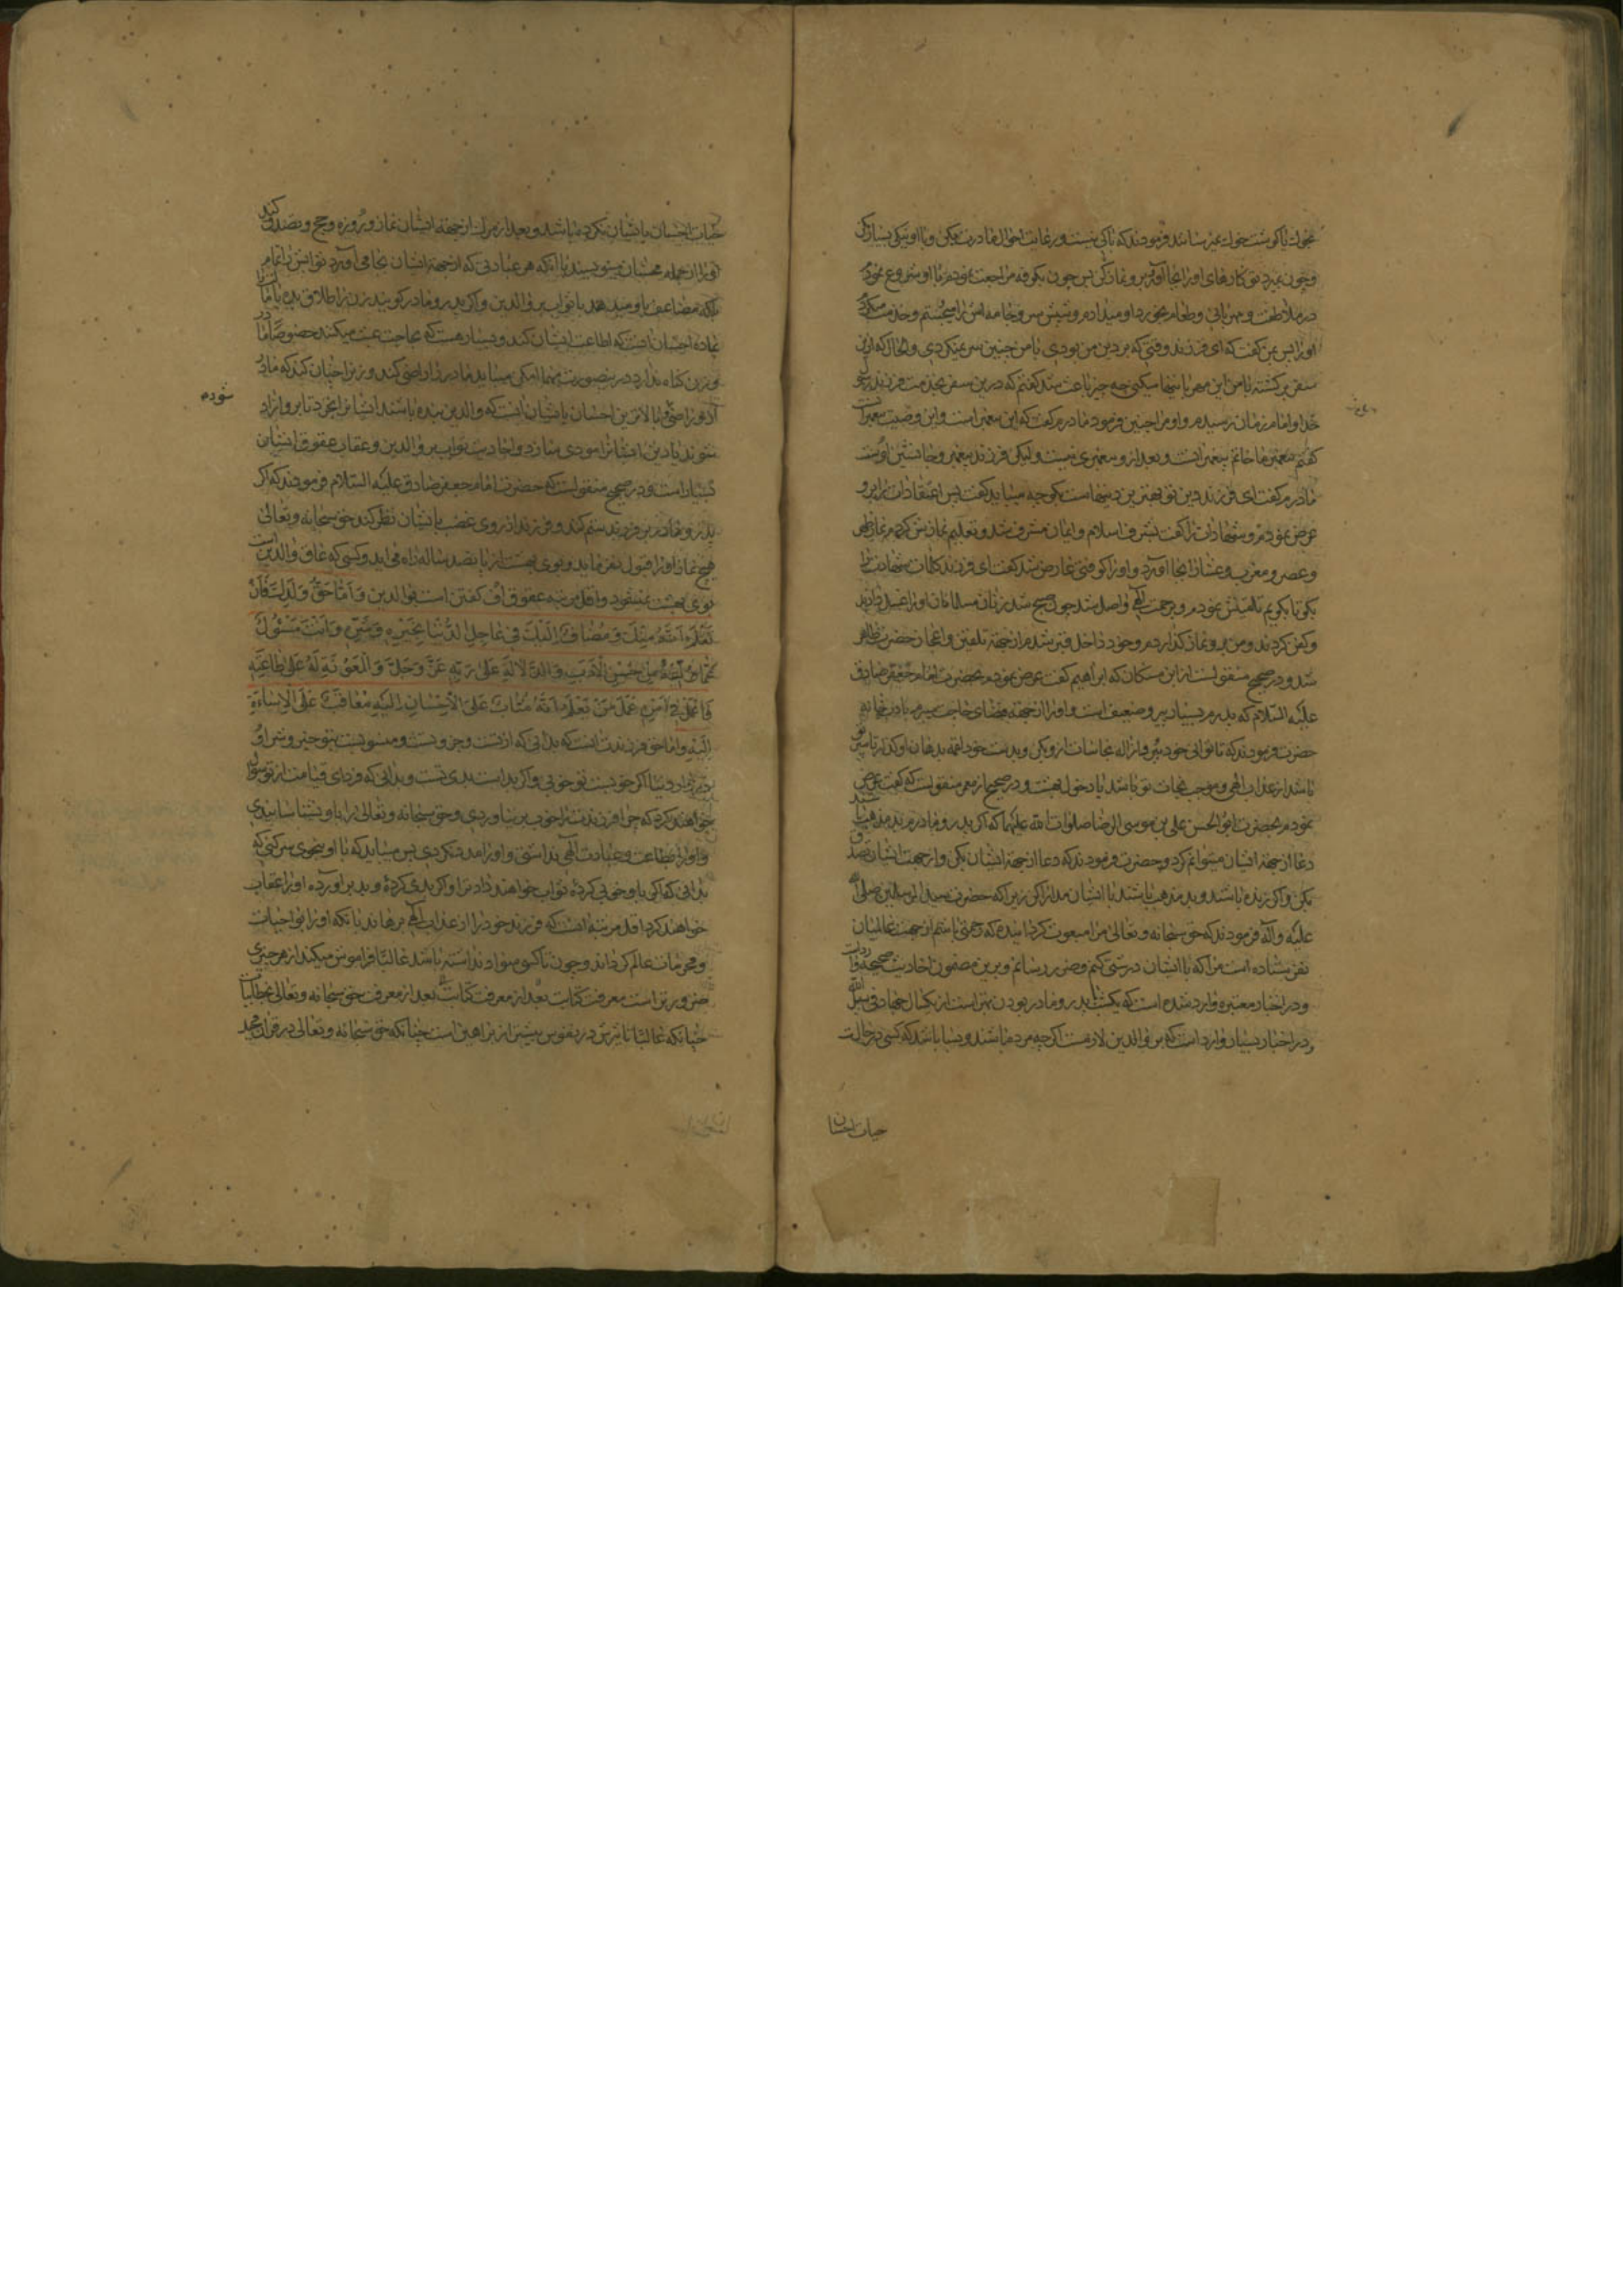 بخوک یا گوشت خوک نمیرسانند فرمودند که باکی نیست و رعایت احوال مادرت بکن و با او نیکی بسیار کن
و چون بمیرد تو کارهای او را بجا آور و برو نماز کن پس چون بکوفه مراجعت نمودم با او شروع نمودم
در ملاطفت و مهربانی و طعام بخورد او میدادم و شپش سر و جامه اش را میجستم و خدمت میکردم
او را پس بمن گفت که ای فرزند وقتی که بر دین من بودی با من چنین سر نمیکردی و الحال که ازین
سفر برگشته با من این مهربانیها میکنی چه چیز باعث شد گفتم که درین سفر بخدمت فرزند
خدا و امام زمان رسیدم و او مرا چنین فرمود مادرم گفت که این پیغمبر است و این وصیت پیغمبرانست
گفتم پیغمبر ما خاتم پیغمبرانست و بعد ازو پیغمبری نیست ولیکن فرزند پیغمبر و جانشین اوست
مادرم گفت ای فرزند دین تو بهترین دینهاست بگو چه میباید گفت پس اعتقادات را برو
عرض نمودم و شهادات را گفت بشرف اسلام و ایمان مشرف شد و تعلیم نمازش کردم نماز ظهر
و عصر و مغرب و عشا را بجا آورد و او را کوفتی عارض شد گفت ای فرزند کلمات شهادت را
بگو تا بگویم تلقینش نمودم و برحمت الهی واصل شد چون صبح شد زنان مسلمانان او را غسل دادند
و کفن کردند و من برو نماز گذاردم و خود داخل قبر شدم از جهة تلقین و اعجاز حضرت ظاهر
شد و در صحیح منقولست از ابن مسکان که ابراهیم گفت عرض نمودم بحضرت امام جعفر صادق
علیه السلام که پدرم بسیار پیر و ضعیف است و او را از جهة قضای حاجت میبرم
حضرت فرمودند که تا توانی خود ببر و ازاله نجاسات ازو بکن و بدست خود لقمه بدهان او گذار تا سپر تو
باشد از عذاب الهی و موجب نجات تو باشد یا دخول بهشت و در صحیح از معمر منقولست که گفت عرض
نمودم بحضرت ابو الحسن علی بن موسی الرضا صلوات الله علیهما که اگر پدر و مادرم بد مذهب باشند
دعا از جهة ایشان میتوانم کرد و حضرت فرمودند که دعا از جهة ایشان بکن و از جهت ایشان تصدق
بکن و اگر زنده باشند و بد مذهب باشند با ایشان مدارا کن زیرا که حضرت سید المرسلین صلی الله
علیه و آله فرمودند که حق سبحانه و تعالی مرا مبعوث گردانیده که رحمتی باشم از جهت عالمیان
نفرستاده است مرا که با ایشان درشتی کنم و ضرر رسانم و برین مضمون احادیث صحیحه واردست
و در اخبار معتبره وارد شده است که یکشب با پدر و مادر بودن بهتر است از یکسال جهاد فی سبیل الله
و در اخبار بسیار وارد است که بر والدین لازمست اگر چه مرده باشند و بسا باشد که کسی در حالت
حیات احسان
حیات احسان بایشان نکرده باشد و بعد از مرگ از جهة ایشان نماز و روزه و حج و تصدق کند
او را از جمله محسنان مینویسند با آنکه هر عبادتی که از جهة ایشان بجا می آورد ثوابش را تمام
بلکه مضاعف باو میدهند با ثواب بر والدین و اگر پدر و مادر گویند زن را طلاق بده یا
احسان آنست که اطاعت ایشان کند و بسیار هست که بجاجت عبث میکنند خصوصا مادر
و زن گناه ندارد درینصورت مهما امکن میباید مادر را راضی کند و زن را چنان کند که مادر
ازو راضی شود و بالاترین احسان بایشان آنست که والدین بنده باشند ایشان را بخرد تا برو آزاد
شوند یا دین ایشان را مودی سازد و احادیث ثواب بر والدین و عقاب عقوق ایشان
شودم
بسیار است و در صحیح منقولست که حضرت امام جعفر صادق علیه السلام فرمودند که اگر
پدر و مادر بر فرزند ستم کنند و فرزند از روی غضب بایشان نظر کند حق سبحانه و تعالی
هیچ نماز او را قبول نفرماید و بوی بهشت از پانصد ساله راه می آید و کسی که عاق والدین است
بوی بهشت نمیشنود و اقل مرتبه عقوق اف گفتن است بوالدین وَ اَمّا حَقُّ وَلَدِکَ فَاَنْ
تَعْلَمَ اَنَّهُ مِنْکَ وَ مُضافٌ اِلَیْکَ فی عاجِلِ الدُّنْیا بِخَیْرِهِ وَ شَرِّهِ وَ اَنْتَ مَسْئُولٌ
عَمّا وَلیتَهُ مِنْ حُسْنِ الْاَدَبِ وَ الدَّلالَةِ عَلی رَبِّهِ عَزَّ وَ جَلَّ وَ الْمَعُونَةِ لَهُ عَلی طاعَتِهِ
فَاعْمَلْ فی اَمْرِهِ عَمَلَ مَنْ یَعْلَمُ اَنَّهُ مُثابٌ عَلَی الْاِحْسانِ اِلَیْهِ مُعاقَبٌ عَلَی الْاِساءَةِ
اِلَیْهِ و اما حق فرزندت آنست که بدانی که از تست و جزو تست و منسوبست بتو خیر و شر او
در دنیا اگر خوبست تو خوبی و اگر بد است بدی تست و بدانی که فردای قیامت از تو سؤال
خواهند کرد که چرا فرزندت را خوب بر نیاوردی و حق سبحانه و تعالی را باو نشناسانیدی
و او را بطاعت و عبادت الهی نداشتی و او را مدد نکردی پس میباید که با او بنحوی سر کنی که
بدانی که اگر باو خوبی کردۀ ثواب خواهند دادت و اگر بدی کردۀ و بد بر آوردۀ او را عقاب
خواهند کرد اقل مرتبه آنست که فرزند خود را از عذاب الهی برهاند بآنکه او را بواجبات
و محرمات عالم گرداند و چون تا کسی سواد نداشته باشد غالبا فراموش میکند از هر چیزی
ضرورتر است معرفت کتابت بعد از معرفت حق سبحانه و تعالی
چنانکه غالبا تاثیرش در نفوس بیشتر از براهین است چنانکه حق سبحانه و تعالی در قرآن مجید